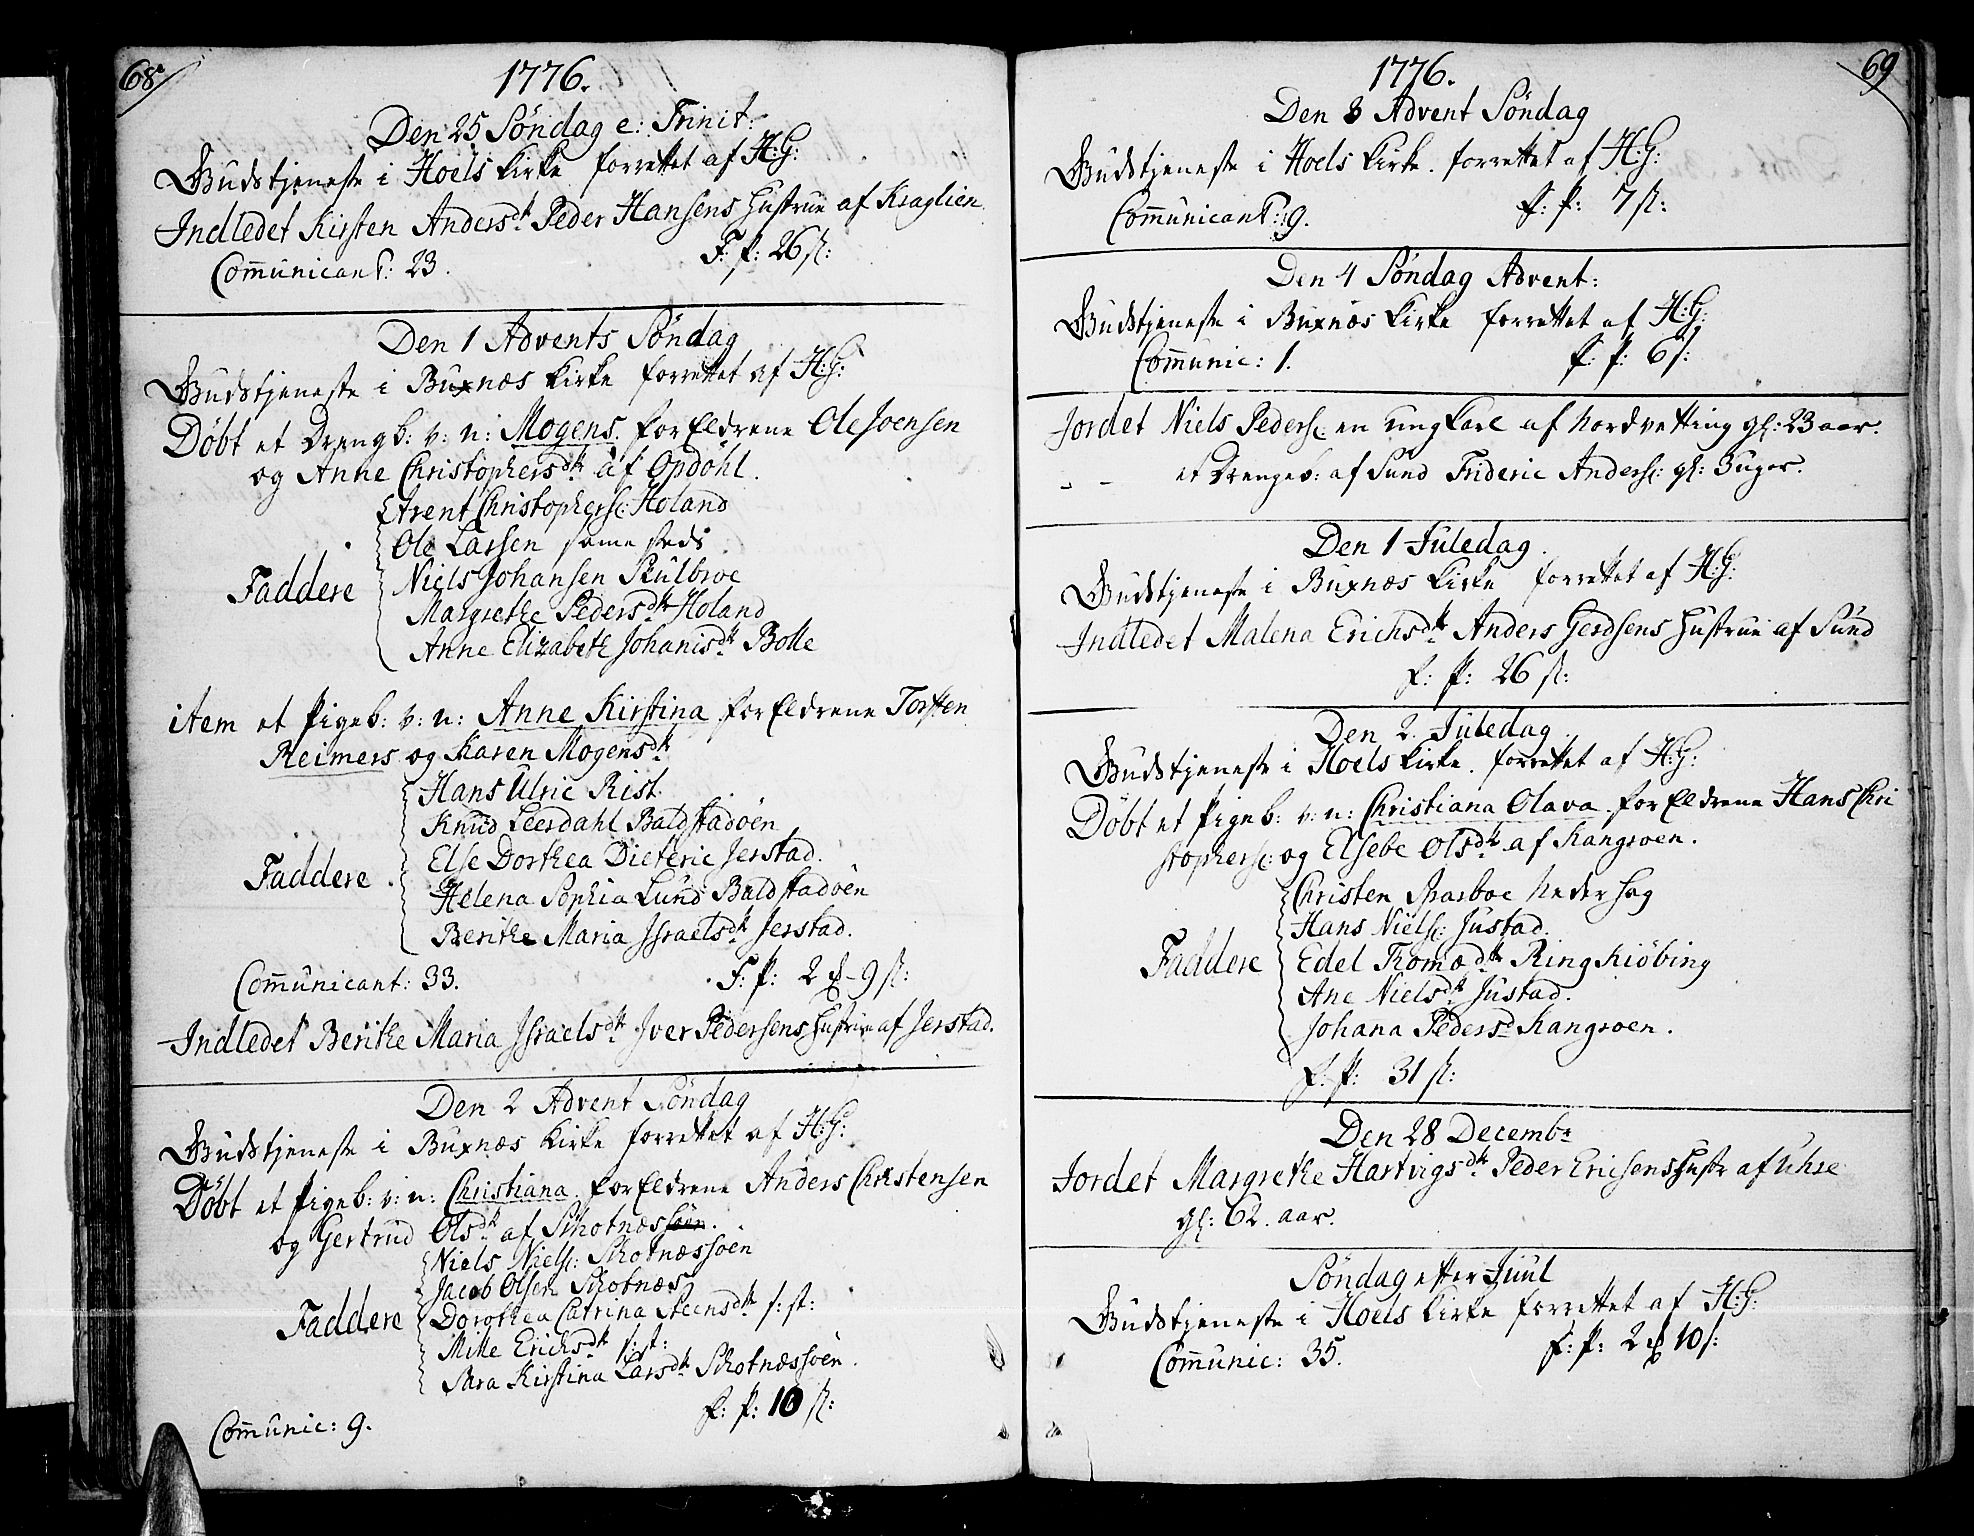 68.
1776.
Den 25 Söndag e: Trinit:
Gudstjeneste i Hoels Kirke forrettet af H:G:
Indledet Kirsten Andersdt: Peder Hansens Hustrue af Kraglien
Com̄unicant: 23.
F: p: 26 sl:
Den 1 Advents Söndag
Gudstjeneste i Buxnæs Kirke forrettet af H:G:
Döbt et Drengb: v: n: Mogens. forEldrene Ole Joensen
og Anne Christophersdt: af Opdöhl.
Arent Christophers: Holand
Ole Larsen same steds
Faddere
Niels Johansen Skulbroe
Margrethe Pedersdt: Holand
Anne Elizabeth Johanisdt: Bolle
item et Pigeb: v: n: Anne Kirstina forEldrene Torsten
Reimers og Karen Mogensdt:
Hans Ulric Rist.
Knud Leerdahl Baldstadöen
Faddere
Else Dorthea Dieteric Jerstad.
Helena Sophia Lund Baldstadöen
Berithe Maria Israelsdt: Jerstad.
Com̄unicant: 33.
F: p: 2 - 9 sl:
Indledet Berithe Maria Israelsdt: Iver Pedersens Hustrue af Jerstad.
Den 2 Advent Söndag
Gudstjeneste i Buxnæs Kirke forrettet af H:G:
Döbt et Pigeb: v: n: Christiana forEldrene Anders Christensen
og Gertrud Olsdt: af Skotnæssöen.
Niels Niels: Skotnæssöen
Jacob Olsen Skotnæs
Faddere
Dorothea Catrina Steensdt: s: st:
Mille Erichsdt: s: st:
Sara Kirstina Larsdt: Skotnæssöen.
Comunic: 9.
f: p: 10 sl:
69
1776.
Den 3 Advent Söndag
Gudstjeneste i Hoels Kirke. forrettet af H:G:
Com̄unicant: 9.
f: p: 7 sl:
Den 4 Söndag Advent:
Gudstjeneste i Buxnæs Kirke forrettet af H:G:
Com̄unic: 1.
f: p: 6 s:
Jordet Niels Peders: en ungKarl af Nordvetting gl: 23 aar.
- - et Drengeb: af Sund Frideric Anders: gl: 3 uger.
Den 1 Juledag.
Gudstjeneste i Buxnæs Kirke forrettet af H:G:
Indledet Malena Erichsdt: Anders Gerdsens Hustrue af Sund
f: p: 26 sl:
Den 2. Juledag.
Gudstjeneste i Hoels Kirke. forrettet af H:G:
Döbt et Pigeb: v: n: Christiana Olava forEldrene Hans Chri
stophers: og Elsebe Olsdt: af Kangroen.
Christen Sparboe Neder Hag
Hans Niels: Justad.
Faddere
Edel Thomædt: Ring Kiöbing
Ane Nielsdt: Justad.
Johana Pedersd: Kangroen.
f: p: 31 sl:
Den 28 Decembr
Jordet Margrethe Hartvigsdt: Peder Ericsens Hustr af Uhre
gl: 62. aar.
Söndag efter Juul
Gudstjeneste i Hoels Kirke forrettet af H:G:
Com̄unic: 35.
f: p: 2 10 s: